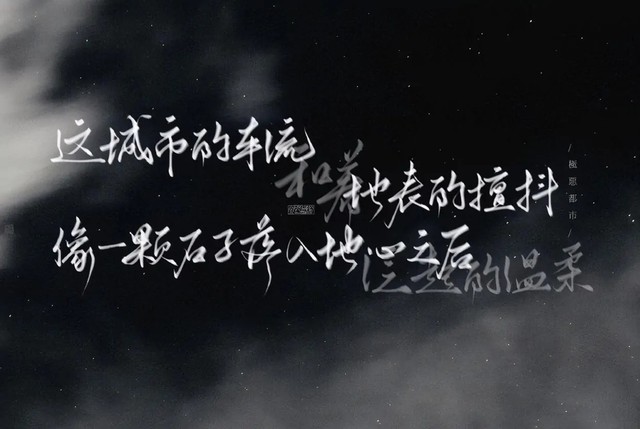 这城市的车流
和着
地表的擅抖
像一颗石子落入地心之后
泛起的温柔
/極惡都市/